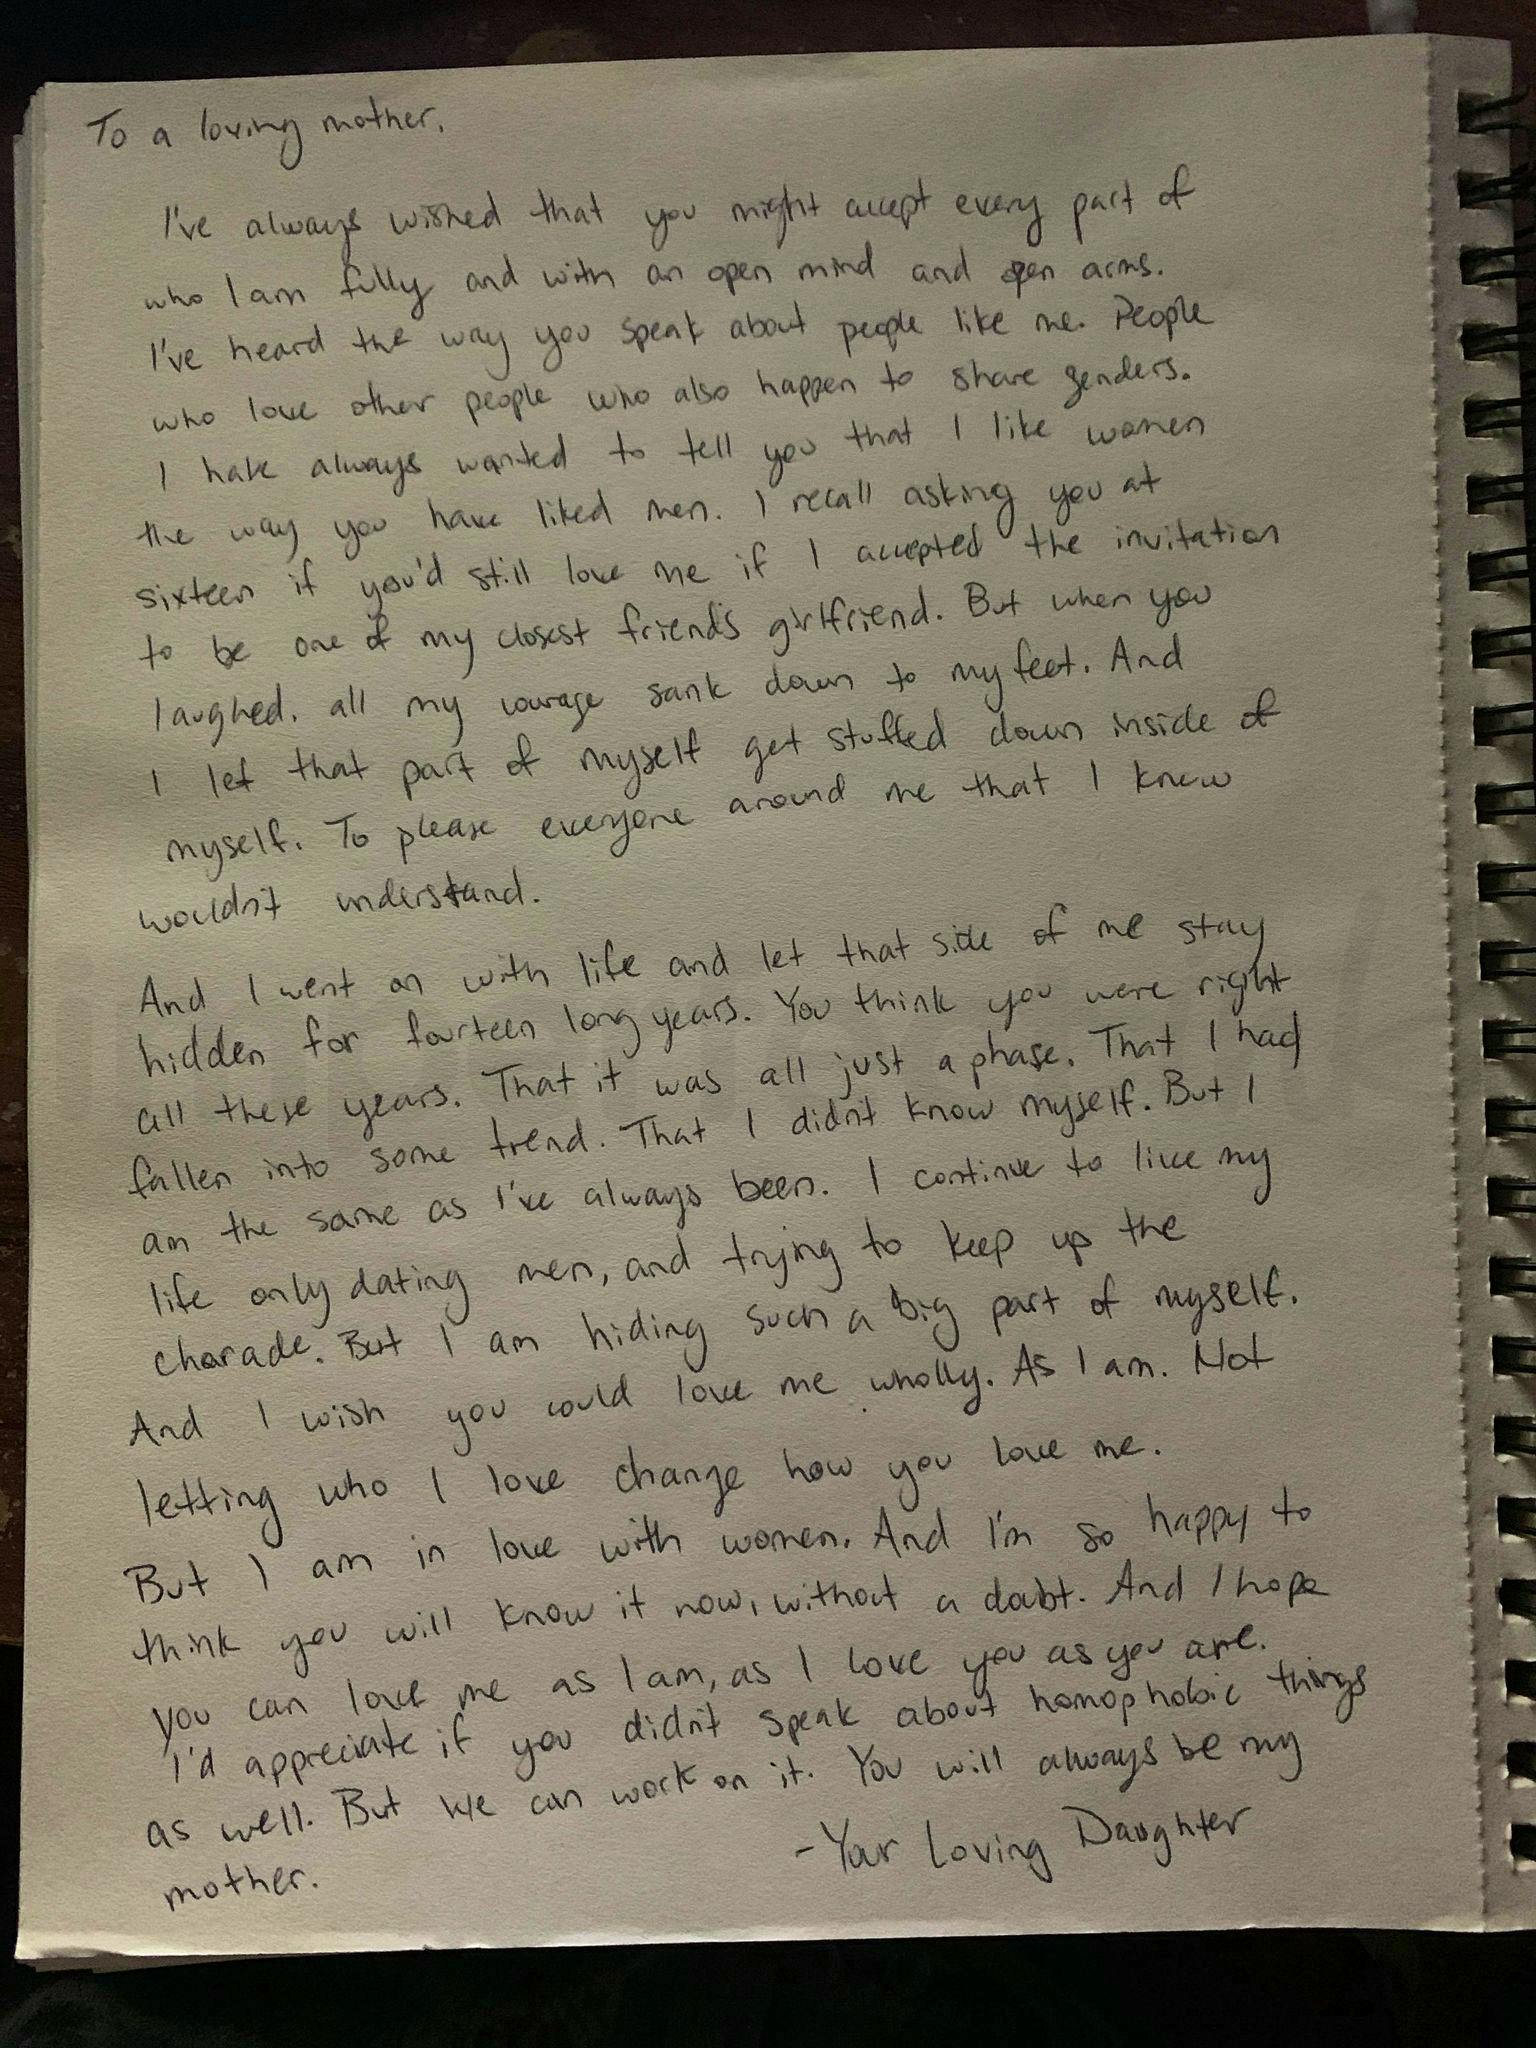 To a loving mother,
I've always wished that you might accept every part of
who I am fully and with an open mind and open arms.
I've heard the way you speak about people like me. People
who love other people who also happen to share genders.
I have always wanted to tell you that I like women
the way you have liked men. I recall asking you at
sixteen if you'd still love me if I accepted the invitation
to be one of my closest friend's girlfriend. But when you
laughed, all my courage sank down to my feet. And
I let that part of myself get stuffed down inside of
myself. To please everyone around me that I knew
wouldn't understand.
And I went on with life and let that side of me stay
hidden for fourteen long years. You think you were right
all these years. That it was all just a phase. That I had
fallen into some trend. That I didn't know myself. But I
am the same as I've always been. I continue to live my
life only dating men, and trying to keep up the
charade. But I am hiding such a big part of myself.
And I wish you could love me wholly. As I am. Not
letting who I love change how you love me.
But I am in love with women. And I'm so happy to
think you will know it now, without a doubt. And I hope
you can love me as I am, as I love you as you are.
I'd appreciate if you didn't speak about homophobic things
as well. But we can work on it. You will always be my
mother.
-Your Loving Daughter